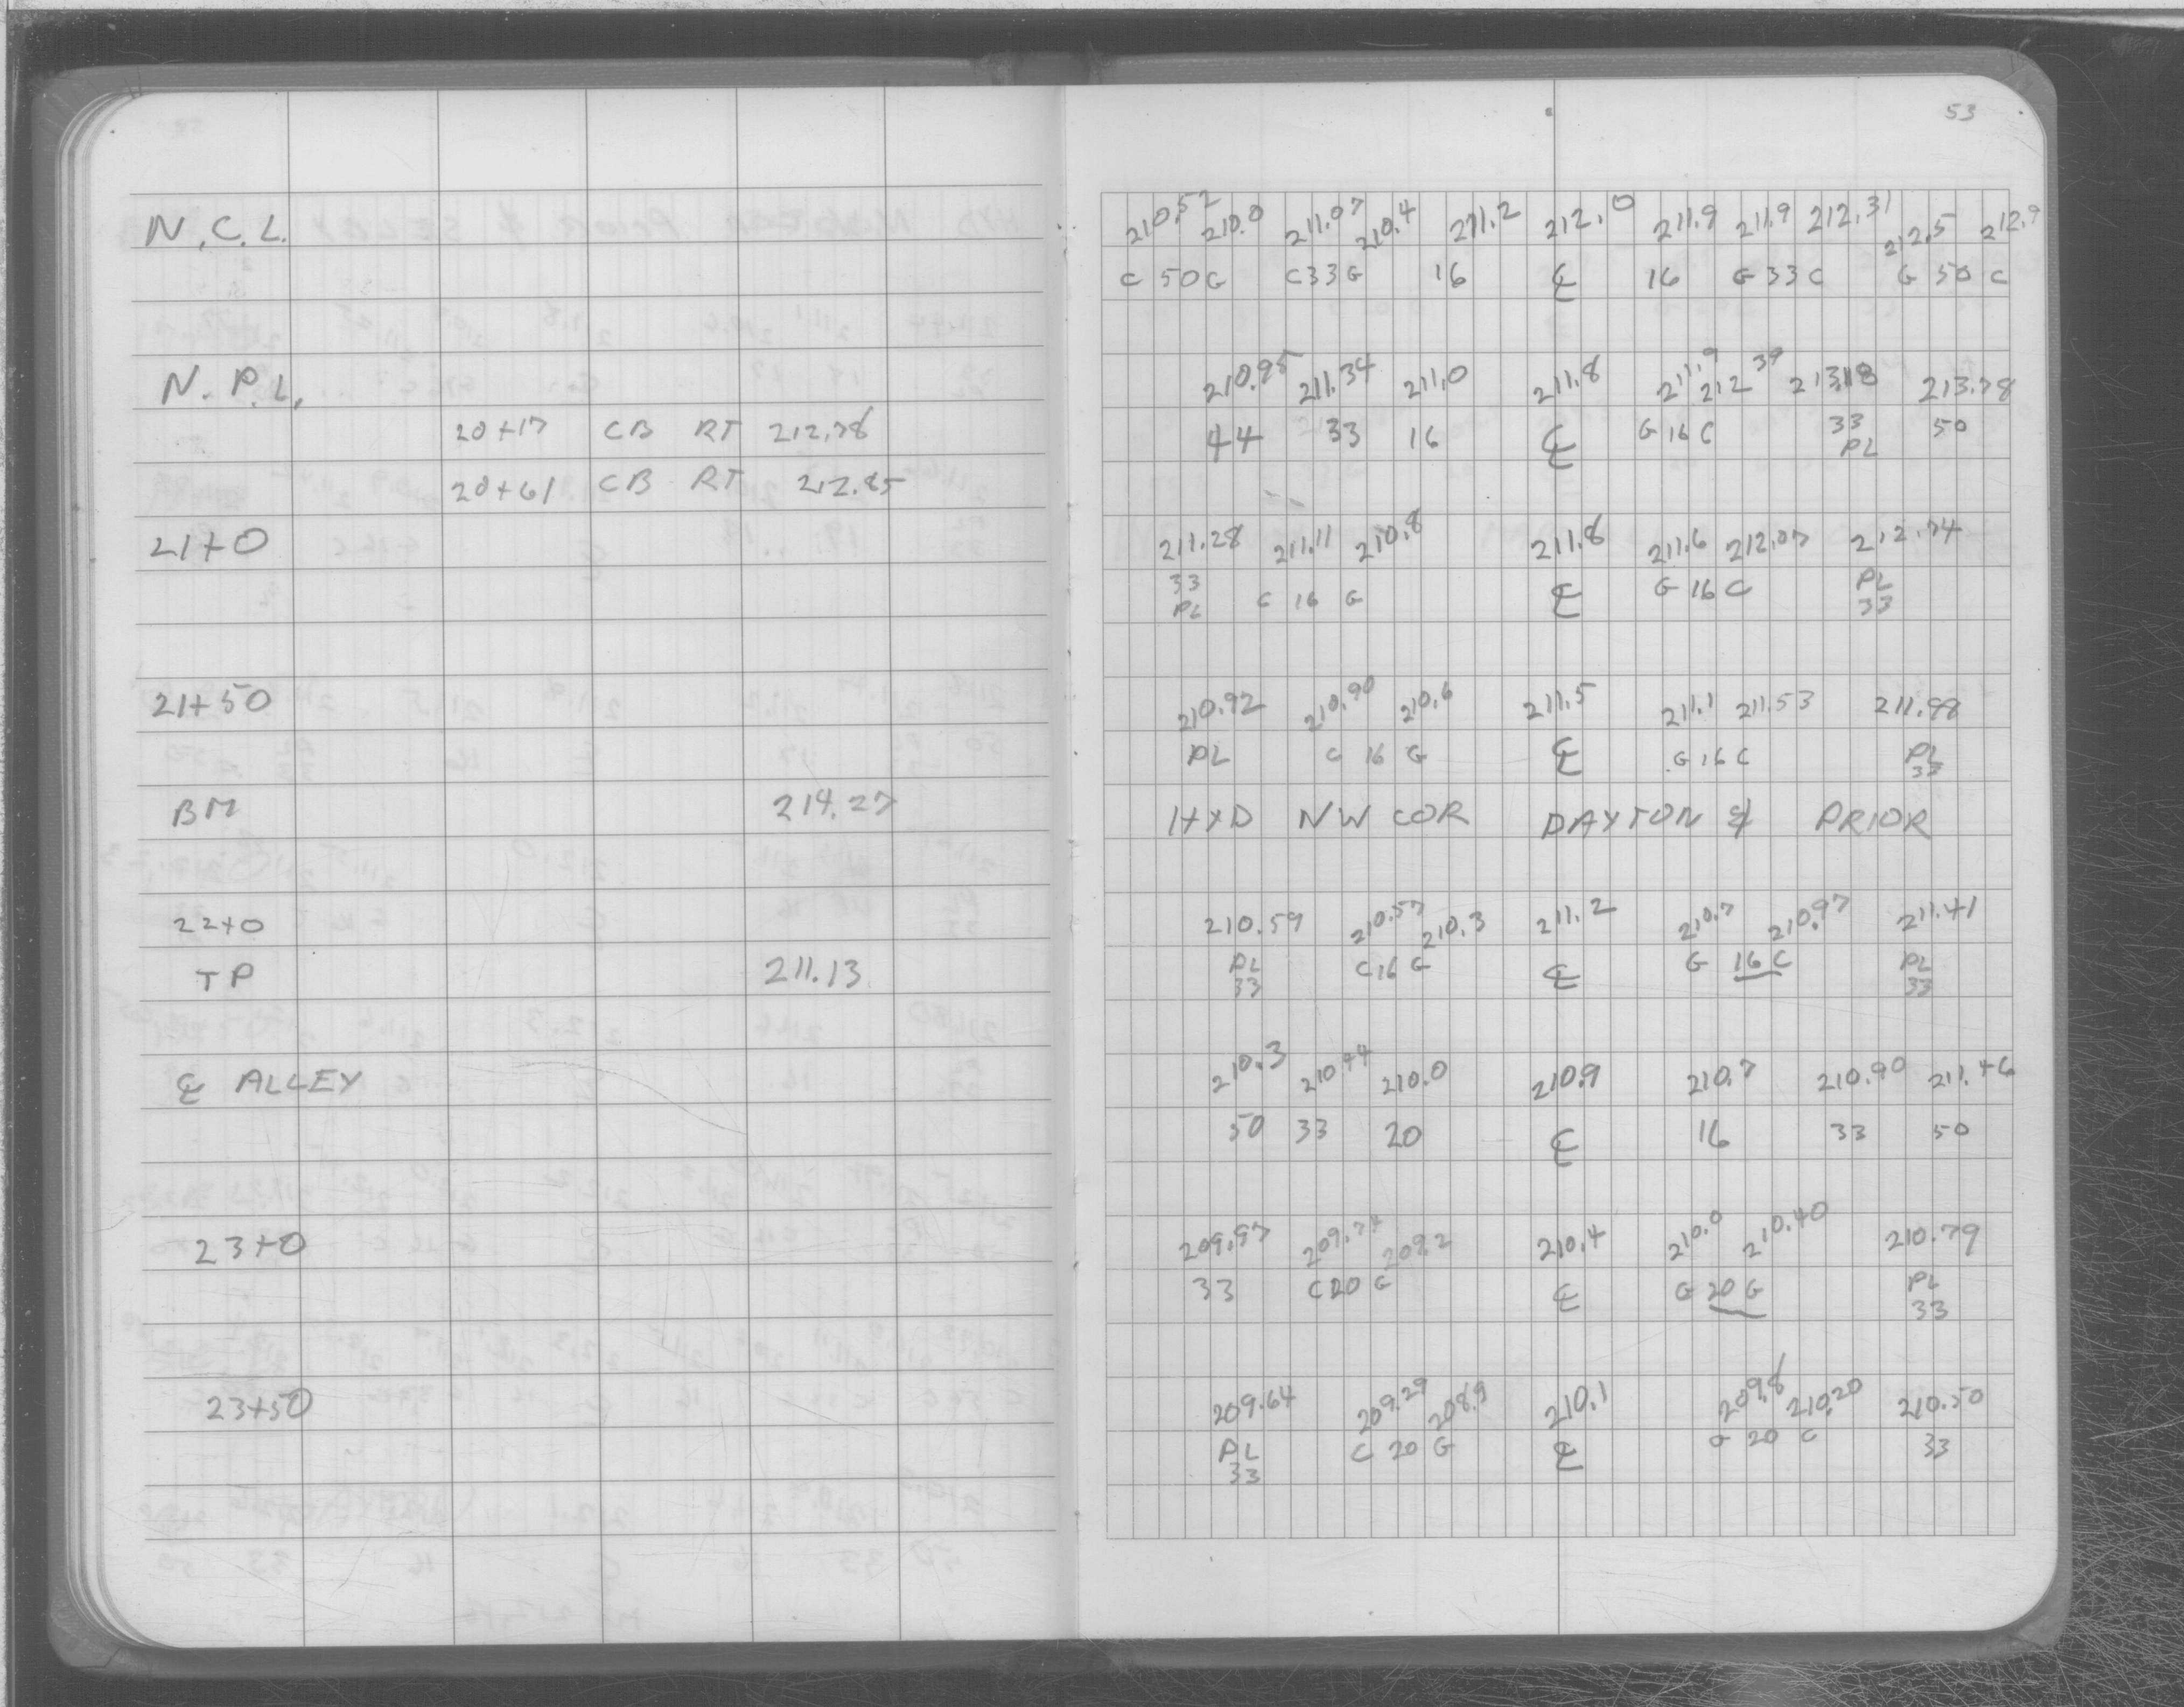 53
N.C.L. 210.52 210.0 211.07 210.4 211.2 212.0 211.9 211.9 212.31 212.5 212.9
C 50 G C 33 G 16 ℄ 16 G 33 C G 50 C
N.P.L. 210.95 211.34 211.0 211.8 211.9 212.39 213.18 213.78
20+17 CB RT 212.78 44 33 16 ℄ G 16 C 33 PL 50
20+61 CB RT 212.85
21+0 211.28 211.11 210.8 211.8 211.6 212.07 212.74
33 PL C 16 G ℄ G 16 C PL 33
21+50 210.92 210.90 210.6 211.5 211.1 211.53 211.98
PL C 16 G ℄ G 16 C PL 33
BM 214.27 HYD NW COR DAYTON & PRIOR
22+0 210.59 210.57 210.3 211.2 210.7 210.97 211.41
TP 211.13 PL 33 C 16 G ℄ G 16 C PL 33
℄ ALLEY 210.3 210.44 210.0 210.9 210.7 210.90 211.46
50 33 20 ℄ 16 33 50
23+0 209.97 209.74 209.2 210.4 210.0 210.40 210.79
33 C 20 G ℄ G 20 G PL 33
23+50 209.64 209.29 208.9 210.1 209.8 210.20 210.50
PL 33 C 20 G ℄ G 20 C 33